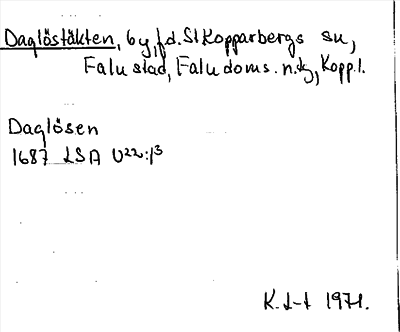 Daglöstäkten, by, f.d. St Kopparbergs sn,
Falu stad, Falu doms. n.tg, Kopp.l.
Daglösen
1687 LSA U22:1³
K.L-t 1971.